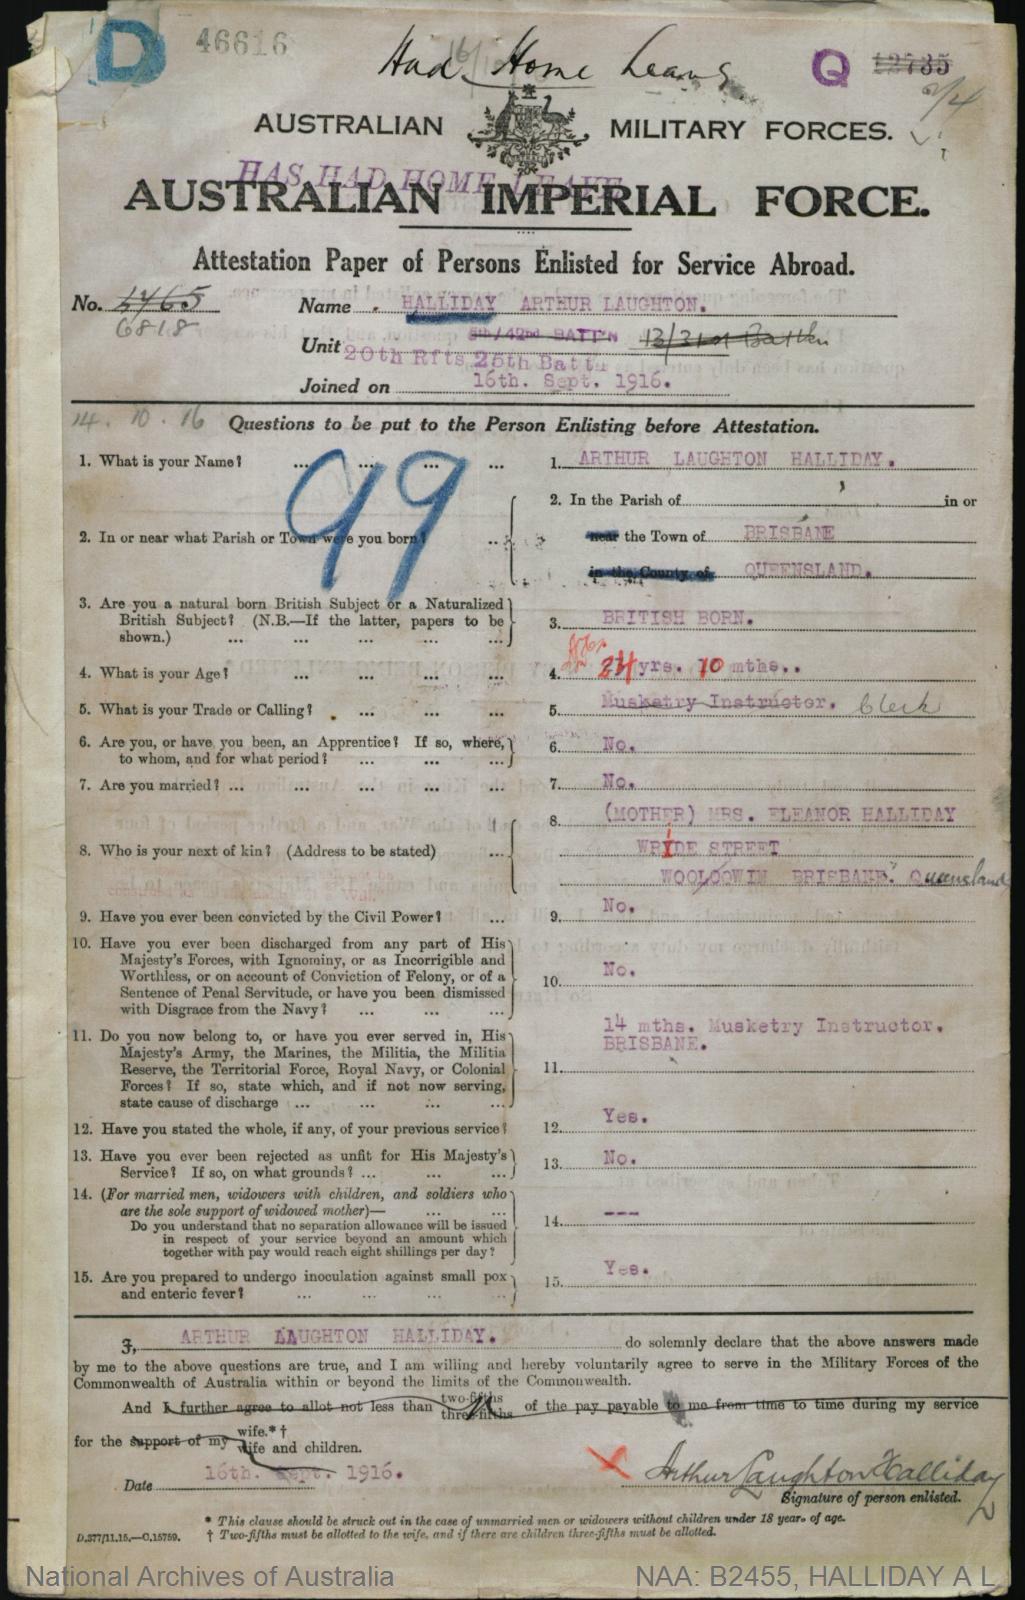 D 46616 Had Home Leave Q 12735
2/4
AUSTRALIAN MILITARY FORCES.
HAS HAD HOME LEAVE
AUSTRALIAN IMPERIAL FORCE.
Attestation Paper of Persons Enlisted for Service Abroad.
No. 2465 Name HALLIDAY ARTHUR LAUGHTON.
6818
Unit 8th/42nd BATT'N 13/31st Battln
20th Rfts 25th Battn
Joined on 16th. Sept. 1916.
14.10.16 Questions to be put to the Person Enlisting before Attestation.
99
1. What is your Name? ... ... ... ... 1. ARTHUR LAUGHTON HALLIDAY.
2. In the Parish of in or
2. In or near what Parish or Town were you born? ... near the Town of BRISBANE
in the County of QUEENSLAND.
3. Are you a natural born British Subject or a Naturalized
British Subject? (N.B.—If the latter, papers to be
shown.) ... ... ... ... 3. BRITISH BORN.
4. What is your Age? ... ... ... ... 4. 24 yrs. 10 mths..
5. What is your Trade or Calling? ... ... ... 5. Musketry Instructor. Clerk
6. Are you, or have you been, an Apprentice? If so, where,
to whom, and for what period? ... ... ... 6. No.
7. Are you married? ... ... ... ... ... 7. No.
8. (MOTHER) MRS. ELEANOR HALLIDAY
8. Who is your next of kin? (Address to be stated) ... WRIDE STREET
WOOLOOWIN BRISBANE. Queensland
9. Have you ever been convicted by the Civil Power? ... 9. No.
10. Have you ever been discharged from any part of His
Majesty's Forces, with Ignominy, or as Incorrigible and
Worthless, or on account of Conviction of Felony, or of a
Sentence of Penal Servitude, or have you been dismissed
with Disgrace from the Navy? ... ... ... 10. No.
11. Do you now belong to, or have you ever served in, His
Majesty's Army, the Marines, the Militia, the Militia
Reserve, the Territorial Force, Royal Navy, or Colonial
Forces? If so, state which, and if not now serving,
state cause of discharge ... ... ... ...
11. 14 mths. Musketry Instructor.
BRISBANE.
12. Have you stated the whole, if any, of your previous service? 12. Yes.
13. Have you ever been rejected as unfit for His Majesty's
Service? If so, on what grounds? ... ... ... 13. No.
14. (For married men, widowers with children, and soldiers who
are the sole support of widowed mother)— ... ...
Do you understand that no separation allowance will be issued
in respect of your service beyond an amount which
together with pay would reach eight shillings per day? 14. ---
15. Are you prepared to undergo inoculation against small pox
and enteric fever? ... ... ... ... 15. Yes.
I, ARTHUR LAUGHTON HALLIDAY. do solemnly declare that the above answers made
by me to the above questions are true, and I am willing and hereby voluntarily agree to serve in the Military Forces of the
Commonwealth of Australia within or beyond the limits of the Commonwealth.
And I further agree to allot not less than two-fifths three-fifths of the pay payable to me from time to time during my service
for the support of my wife.*† wife and children.
Date 16th. Sept. 1916. Arthur Laughton Halliday
Signature of person enlisted.
* This clause should be struck out in the case of unmarried men or widowers without children under 18 years of age.
D.377/11.15.—C.15759. † Two-fifths must be allotted to the wife, and if there are children three-fifths must be allotted.
National Archives of Australia NAA: B2455, HALLIDAY A L